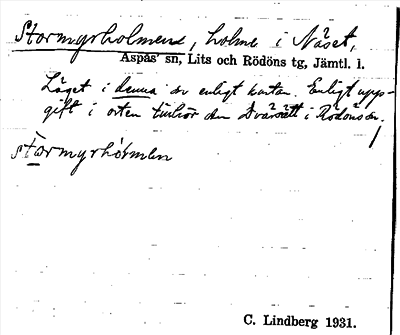 Stormyrholmens, holme i Näset,
Aspås' sn, Lits och Rödöns tg, Jämtl. l.
Läget i denna sn enligt kartan. Enligt upp-
gift i orten tillhör den Dvärsätt i Rödöns sn.
stormyrhòlmen
C. Lindberg 1931.